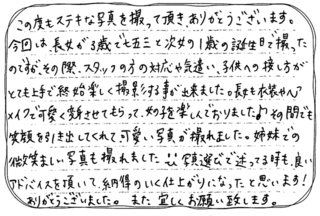 この度もステキな写真を撮って頂きありがとうございます。
今回は、長女が3歳で七五三と次女の1歳の誕生日で撮った
のですが、その際、スタッフの方の対応や気遣い、子供への接し方が
とても上手で終始楽しく撮影する事が出来ました。長女も衣装やヘア
メイクで可愛く変身させてもらって、女の子を楽しんでおりました♪その間でも
笑顔を引き出してくれて可愛い写真が撮れました。姉妹での
微笑ましい写真も撮れました 写真選びで迷ってる時も、良い
アドバイスを頂いて、納得のいく仕上がりになったと思います!
ありがとうございました。また、宜しくお願い致します。